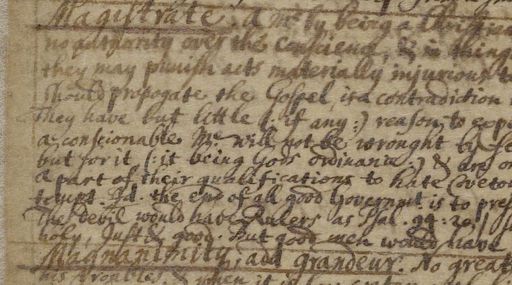 Magistrate. a Mr. by being a Christian
no authority over the Conscience, & in things
they may punish acts materially injurious to
should propogate the Gospel, is a contradiction
They have but little (: if any :) reason to expe
a conscionable Mr. will not be wrought by
but for it (: it being Gods ordinance :) & are
a part of their qualifications to hate Covetou
the end of all good Governmt. is to pres
The devil would have Rulers as Psal. 94: 20
holy, Just & good. But good men would have
Magnanimity, add grandeur. No great
his troubles. & when it is